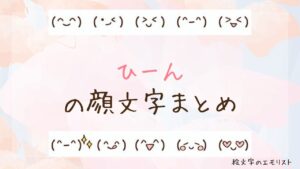 (^‿^) (•᎑<) (>᎑<) (^−^) (>ᴗ<)
ひーん
の顔文字まとめ
(^−^)✨ (^ᴗ^) (^▽^) (｡ᴗ‿ᴗ｡) (♡‿♡)
絵文字のエモリスト